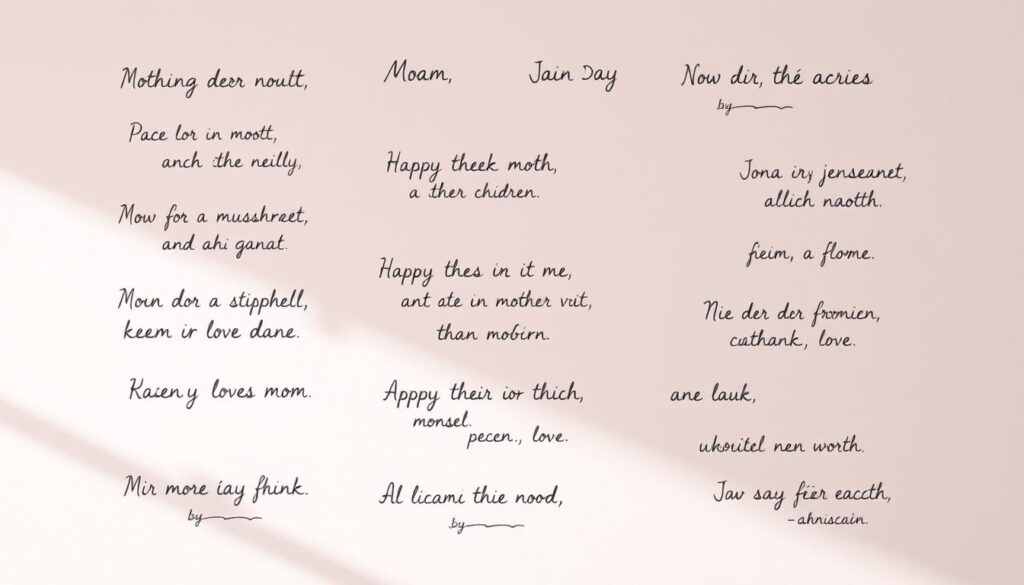 Mothing deer noutt,
Pace lor in mostt,
anch the neilly,
Mow for a musshreet,
and ahi ganat.
Moun dor a stipphell,
keem ir love dane.
Kaseny loves mom.
Mir more iay fhink.
by
Moam, Jain Day
Happy theek moth,
a ther chidren.
Happy thes in it me,
ant ate in mother vrit,
than mobirn.
Appy their ior thich,
monsel.
pecen., love.
Al licami thie nood,
by
Now dir, thé acries
by
Jona iry jenseanet,
allich naotth.
fieim, a flome.
Nie der dcr fromien,
cuthank, love.
ane lauk,
ukouitel nen worth.
Jav say fëer eaccth,
-ahniscain.